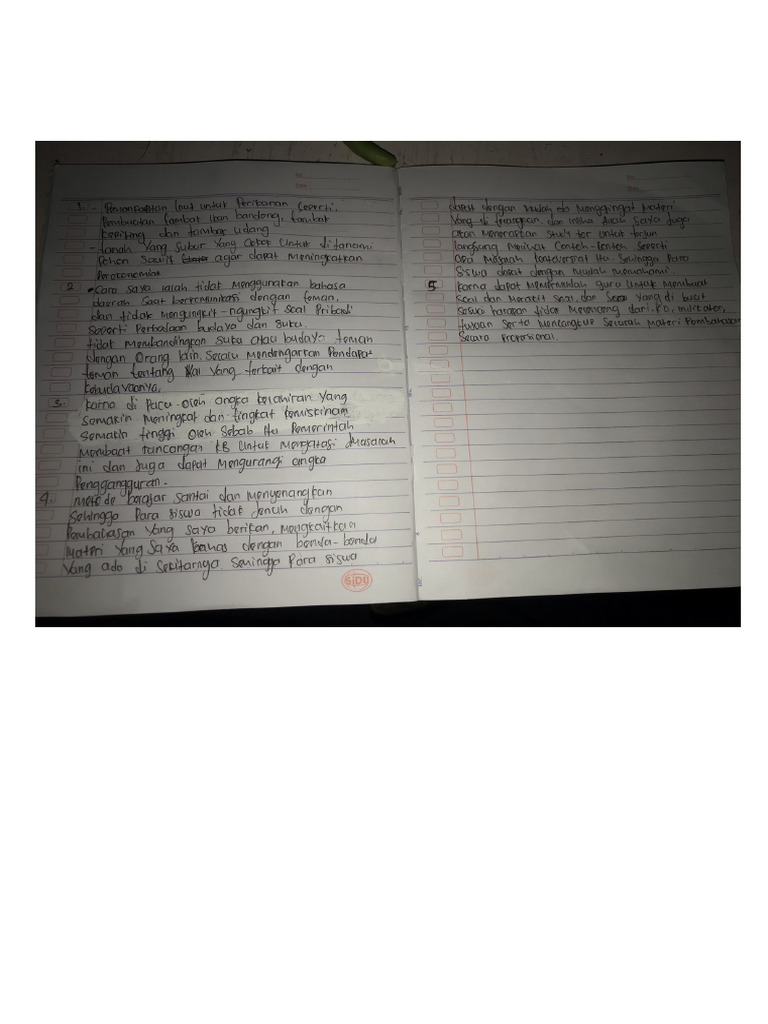 1. - Pemanfaatan laut untuk Perikanan Seperti.
Pembuatan tambat ikan bandeng, tambak
kepiting dan tambak udang
- tanah yang subur yang cocok untuk ditanami
Pohon Sawit agar dapat Meningkatkan
Perekonomian
2. • Cara saya ialah tidak menggunakan bahasa
daerah Saat berkomunikasi dengan teman,
dan tidak mengungkit-ngungkit soal Pribadi
Seperti Perbedaan budaya dan Suku.
tidak Membandingkan Suku atau budaya teman
dengan Orang lain, Selalu Mendengarkan Pendapat
teman tentang yang terkait dengan
kebudayaanya.
3. karna di Pacu oleh angka kelahiran Yang
Semakin Meningkat dan tingkat kemiskinan
Semakin tinggi oleh Sebab itu Pemerintah
Membuat rancangan KB Untuk Mengatasi Masalah
ini dan Juga dapat Mengurangi angka
Penggangguran.
4. metode belajar Santai dan Menyenangkan
Sehingga Para Siswa tidak Jenuh dengan
Pembahasan Yang Saya berikan, Mengkaitkan
Materi Yang Saya bahas dengan benda-benda
Yang ada di Sekitarnya Sehingga Para Siswa
SiDU
dapat dengan Mudah Menggingat Materi
Yang di terangkan. dan insha Allah Saya Juga
akan Menerapkan Study tor Untuk terjun
langsung Melihat Contoh-Contoh Seperti
Apa Masalah kontoversial itu. Sehingga Para
Siswa dapat dengan Mudah Memahami.
5 karna dapat Mempermudah guru Untuk Membuat
Soal dan Merakit Soal, dan Yang di buat
Sesuai harapan tidak Melenceng dari KD,
tujuan Serta Mencangkup Seluruh Materi Pembahasan
Secara Proporsional.